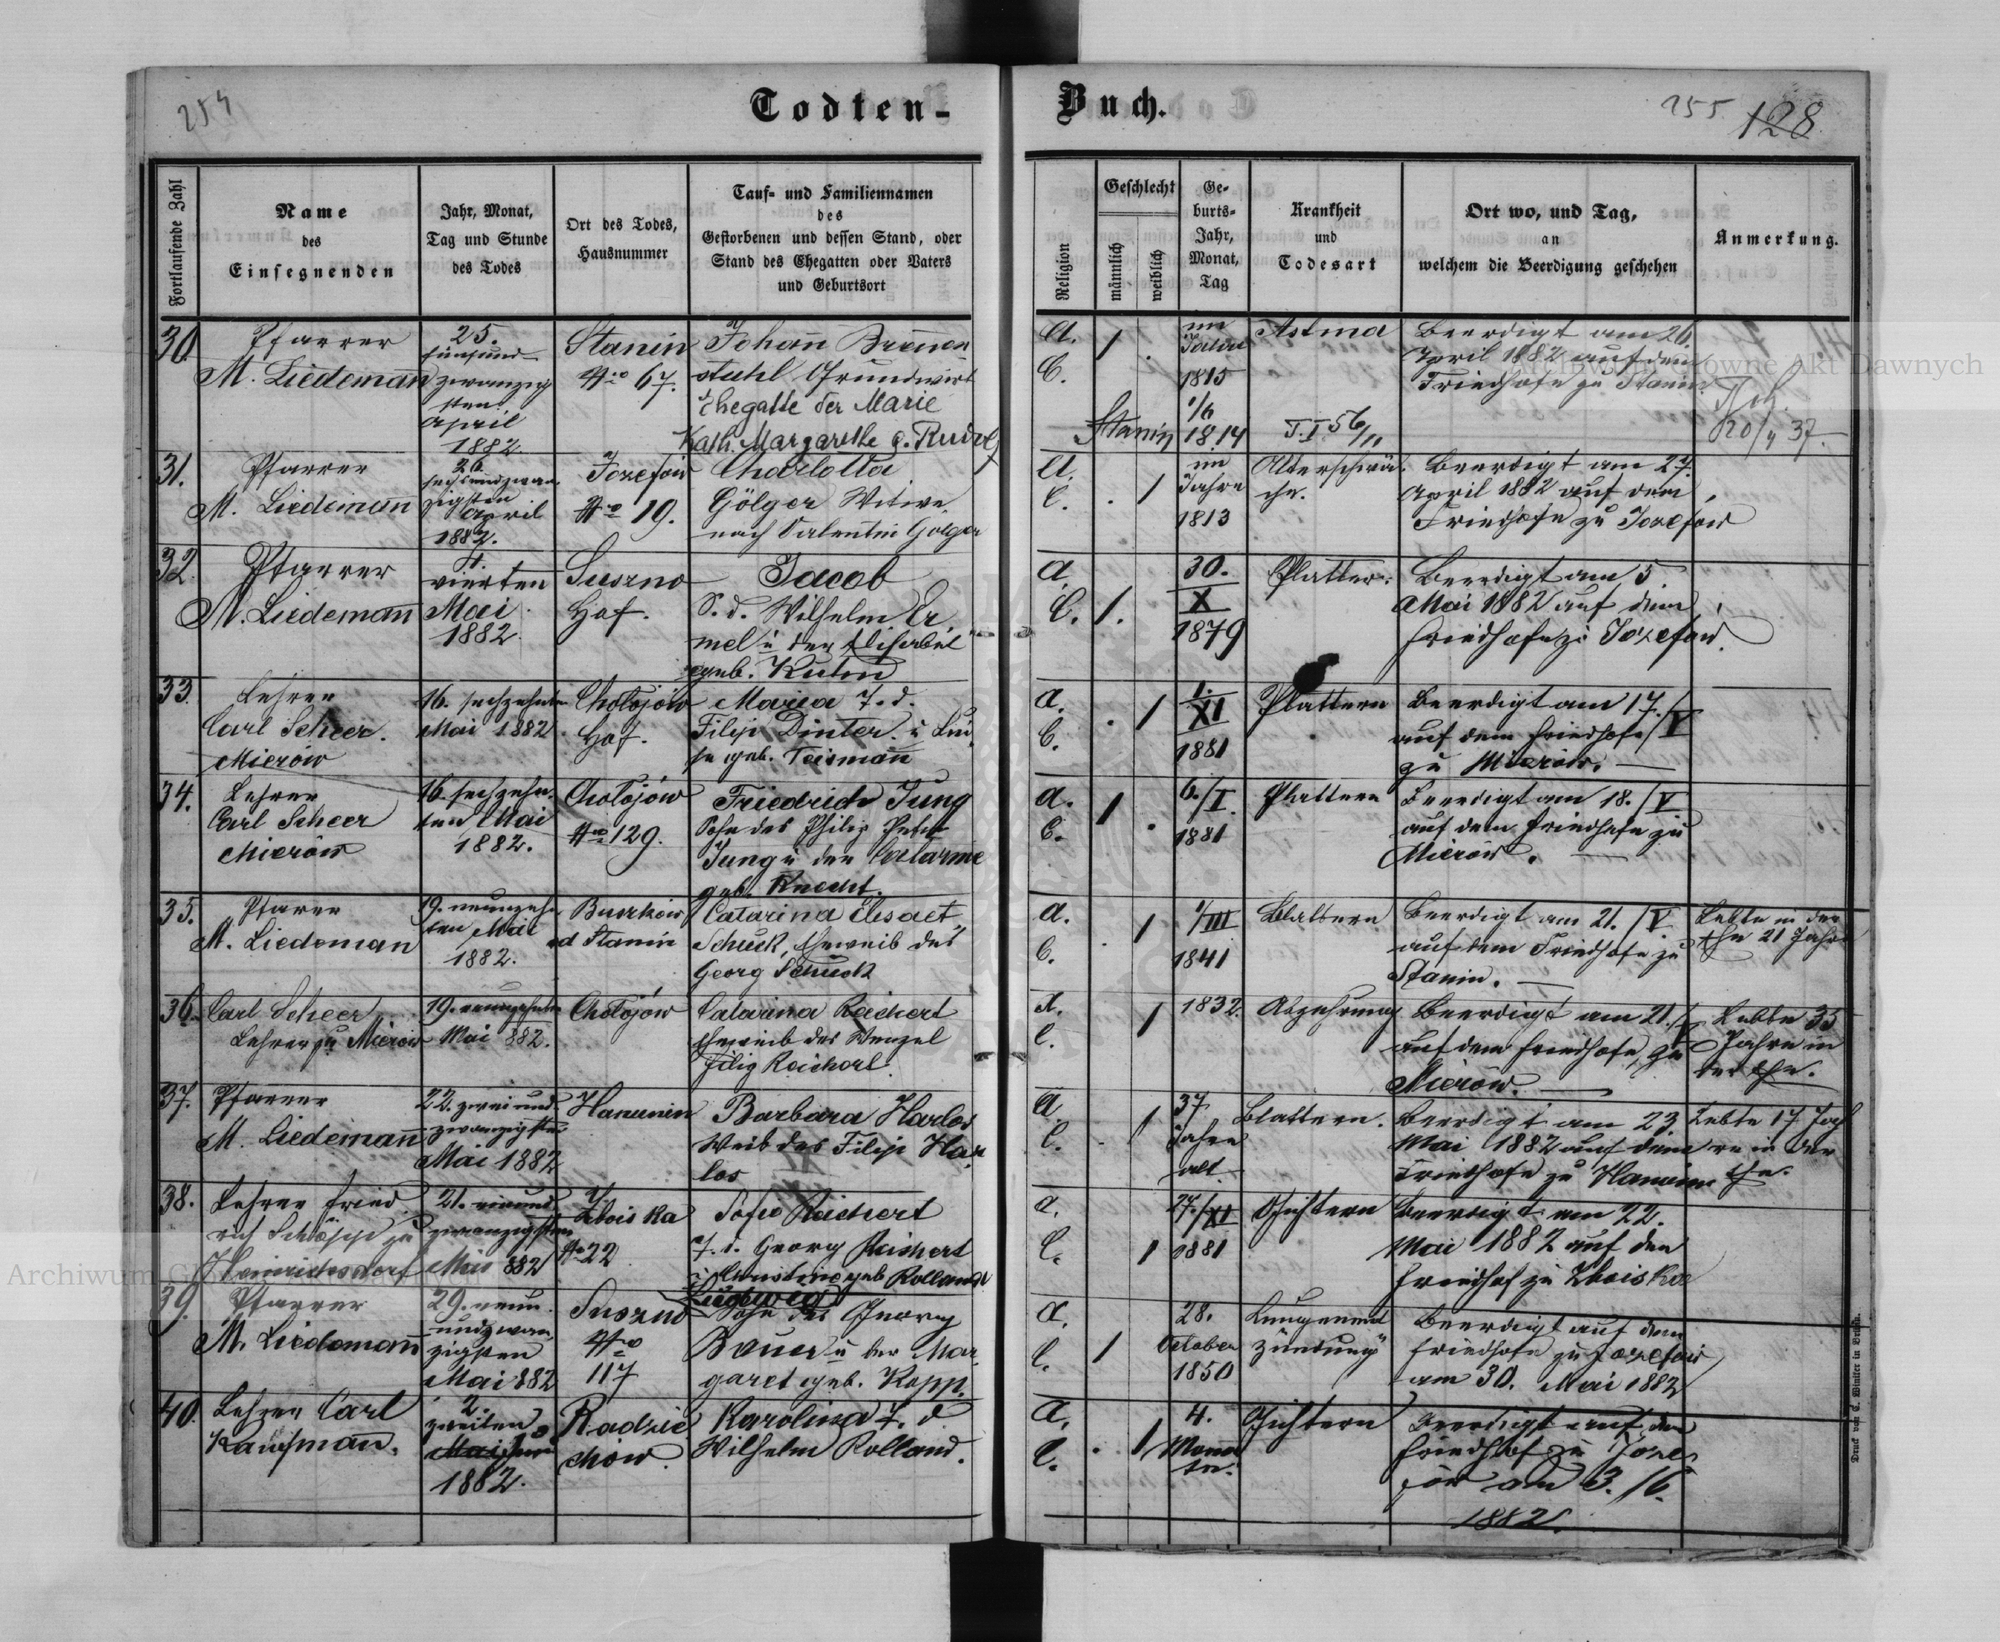 254
Todten-
Buch.
255
128
Fortlaufende Zahl
Name
des
Einsegnenden
Jahr, Monat,
Tag und Stunde
des Todes
Ort des Todes,
Hausnummer
Tauf- und Familiennamen
des
Gestorbenen und dessen Stand, oder
Stand des Ehegatten oder Vaters
und Geburtsort
Religion
Geschlecht
männlich
weiblich
Ge-
burts-
Jahr,
Monat,
Tag
Krankheit
und
Todesart
Ort wo, und Tag,
an
welchem die Beerdigung geschehen
Anmerkung.
30.
Pfarrer
M. Liedemañ
25.
fünfund
zwanzig
sten
April
1882
Stanin
No 67.
Johañ
stuhl Grundwirt
Ehegatte der Marie
Kath. Margarethe g. Rudolf
A.
C.
1
.
im
Jahre
1815
1/6
1814
Stanin
Astma
T. I 56/11
Beerdigt am 26.
April 1882 auf dem
Friedhofe zu Stanin
37.
31.
Pfarrer
M. Liedemañ
26.
sechsundzwan
zigsten
April
1882.
Jozefow
No 19.
Charlotta
Gölger Witwe
nach Valentin Golger
A.
C.
. 1
im
Jahre
1813
Alterschwä-
che.
Beerdigt am 27.
April 1882 auf dem
Friedhofe zu Jozefow
32.
Pfarrer
M. Liedemañ
4.
vierten
Mai
1882.
Suszno
Hof.
Jacob
S. d. Wilhelm Er
mel u der Elisabet
geb. Kuhn
A.
C.
1.
30.
X
1879
Platter.
Beerdigt am 5.
Mai 1882 auf dem
Friedhofe zu Jozefow.
33.
Lehrer
Carl Scheer.
Mierow
16. sechzehnten
Mai 1882
Chołojów
Hof.
Maria T. d.
Filip Dinter u Lui
se geb. Teismañ
A.
C.
. 1
1.
XI
1881
Plattern
Beerdigt am 17./V
auf dem Friedhofe
zu Mierów.
34.
Lehrer
Carl Scheer
Mierów
16. sechzehn-
ten Mai
1882.
Chołojów
No 129.
Friedrich Jung
Sohn des Philip Peter
Jung u der Catarine
geb. Knecht.
A.
C.
1
.
6./I.
1881
Plattern
Beerdigt am 18./V
auf dem Friedhofe zu
Mierów.
35.
Pfarrer
M. Liedeman
19. neunzehn
ten Mai
1882.
Stanin
Catarina Elsaet
Schuck, Eheweib des
Georg Schuck
A.
C.
. 1
1/III
1841
Blattern
Beerdigt am 21./V
auf dem Friedhofe zu
Stanin.
Lebte in der
Ehe 21 Jahre
36.
Carl Scheer
Lehrer zu Mierów
19. neunzehnten
Mai 882.
Chołojów
Catarina Reichert
Eheweib des Wenzel
Filip Reichert
A.
C.
1
1832.
Abzehrung
Beerdigt am 21./V
auf dem Friedhofe zu
Mierów.
Lebte 35
Jahre in
der Ehe.
37.
Pfarrer
M. Liedemañ
22. zweiund
zwanzigsten
Mai 1882
Hanunin
Barbara Harlos
Weib des Filip Har
los
A.
C.
. 1
37
Jahre
alt
Blattern.
Beerdigt am 23
Mai 1882 auf dem
Friedhofe zu Hanunin
Lebte 17 Jah
re in der
Ehe.
38.
Lehrer Fried
rich Schöpp zu
Heinrichsdorf
21. einund
zwanzigsten
Mai 882
Zboiska
No 22
Sofie Reichert
T. d. Georg Reichert
u Cristine geb Rolland
A.
C.
1
27./XI
1881
Gichtern
Beerdigt am 22.
Mai 1882 auf den
Friedhof zu Zboiska
39.
Pfarrer
M. Liedemañ
29. neun
undzwan
zigsten
Mai 882
Suszno
No
117
Ludwig
Sohn des Georg
Bauer u der Mar
garet geb. Kopp.
A.
C.
1
28.
October
1850
Lungenent
zündung
Beerdigt auf dem
Friedhofe zu Jozefow
am 30. Mai 1882
40.
Lehrer Carl
Kaufmañ.
2.
zweiten
Mai Juni
1882.
Radzie
chow.
Karolina T. d.
Wilhelm Rolland.
A.
C.
. 1
4.
Mona
te.
Gichtern
Beerdigt auf den
Friedhof zu Joze
fow am 3./6.
1882.
Druck von C. Winiker in Brünn.
Archiwum Główne Akt Dawnych